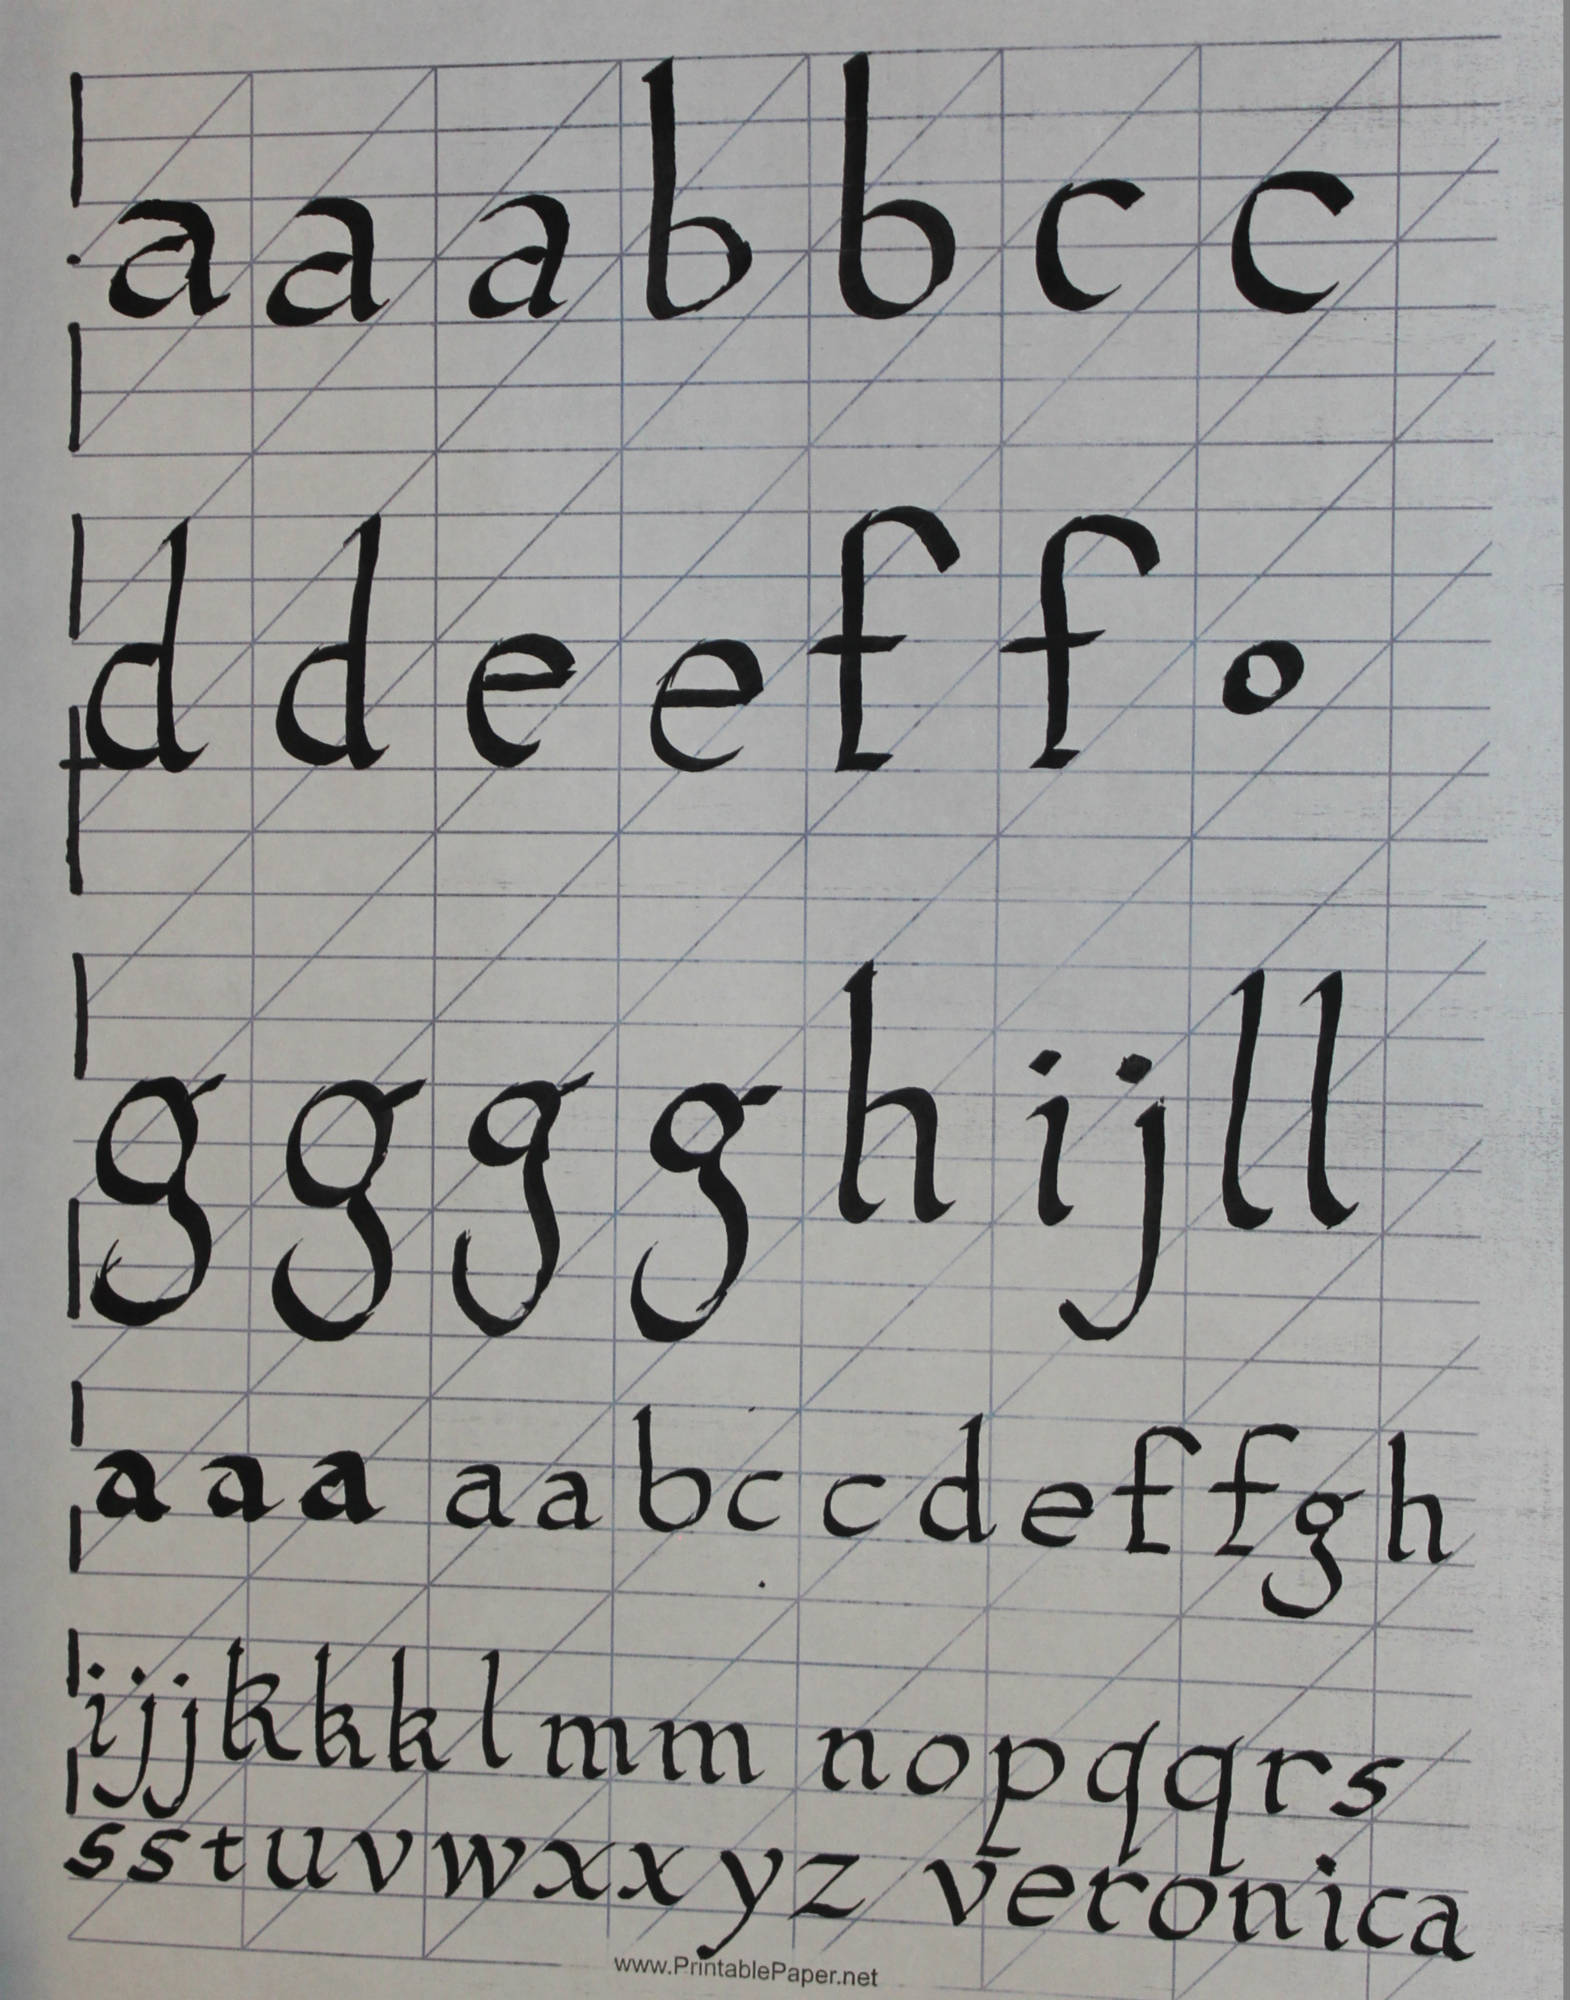 a a a b b c c
d d e e f f o
g g g g h i j l l
a a a a a b c c d e f f g h
i j j k k k l m m n o p q q r s
s s t u v w x x y z veronica
www.PrintablePaper.net